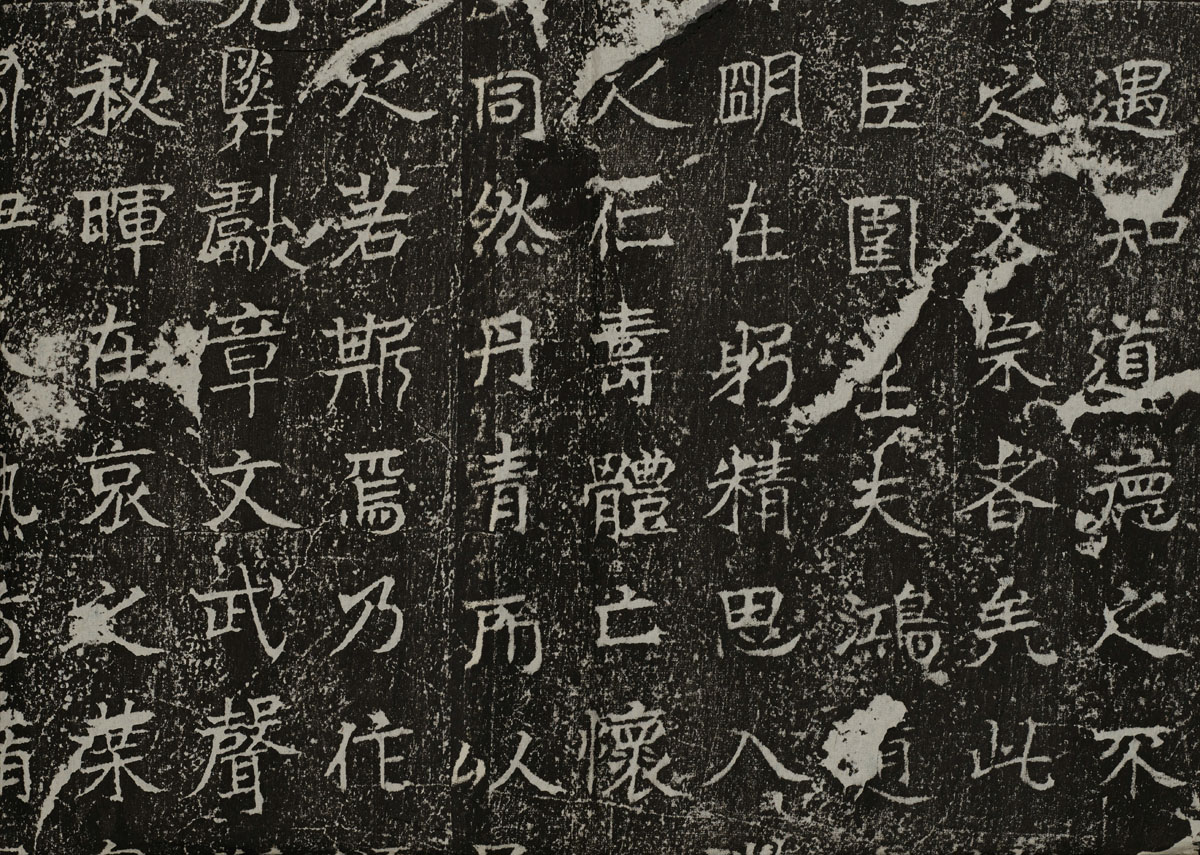 遇知道德之不
之文宗者矣此
臣圍土夫鴻道
朙在躬精思八
人仁壽體亡懷
同然丹青而以
之若斯焉乃作
獻章文武聲
秋暉在哀之葉